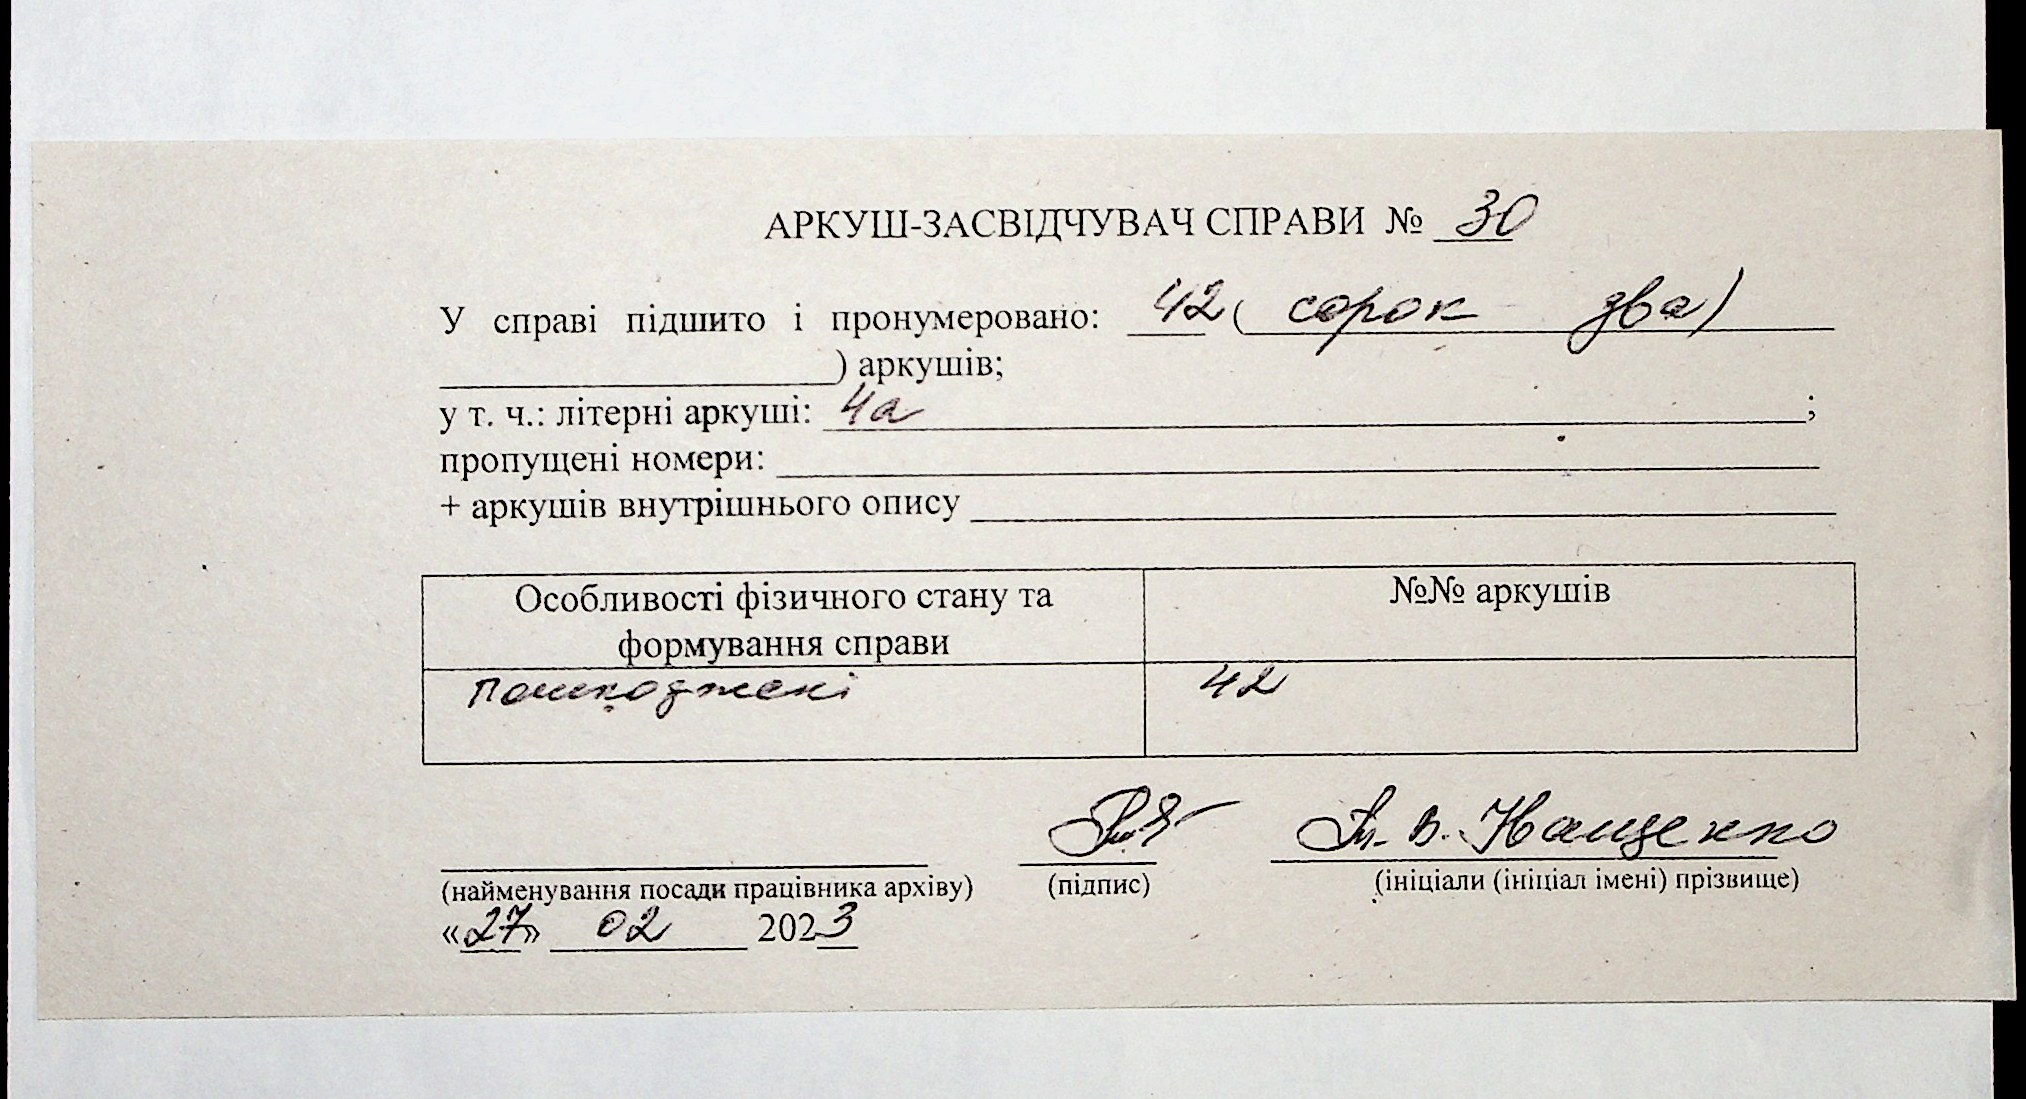 АРКУШ-ЗАСВІДЧУВАЧ СПРАВИ № 30
У справі підшито і пронумеровано: 42 ( сорок два)
) аркушів;
у т. ч.: літерні аркуші: 4а ;
пропущені номери:
+ аркушів внутрішнього опису
Особливості фізичного стану та
формування справи
№№ аркушів
пошкоджені 42
(найменування посади працівника архіву) (підпис) (ініціали (ініціал імені) прізвище)
«27» 02 2023